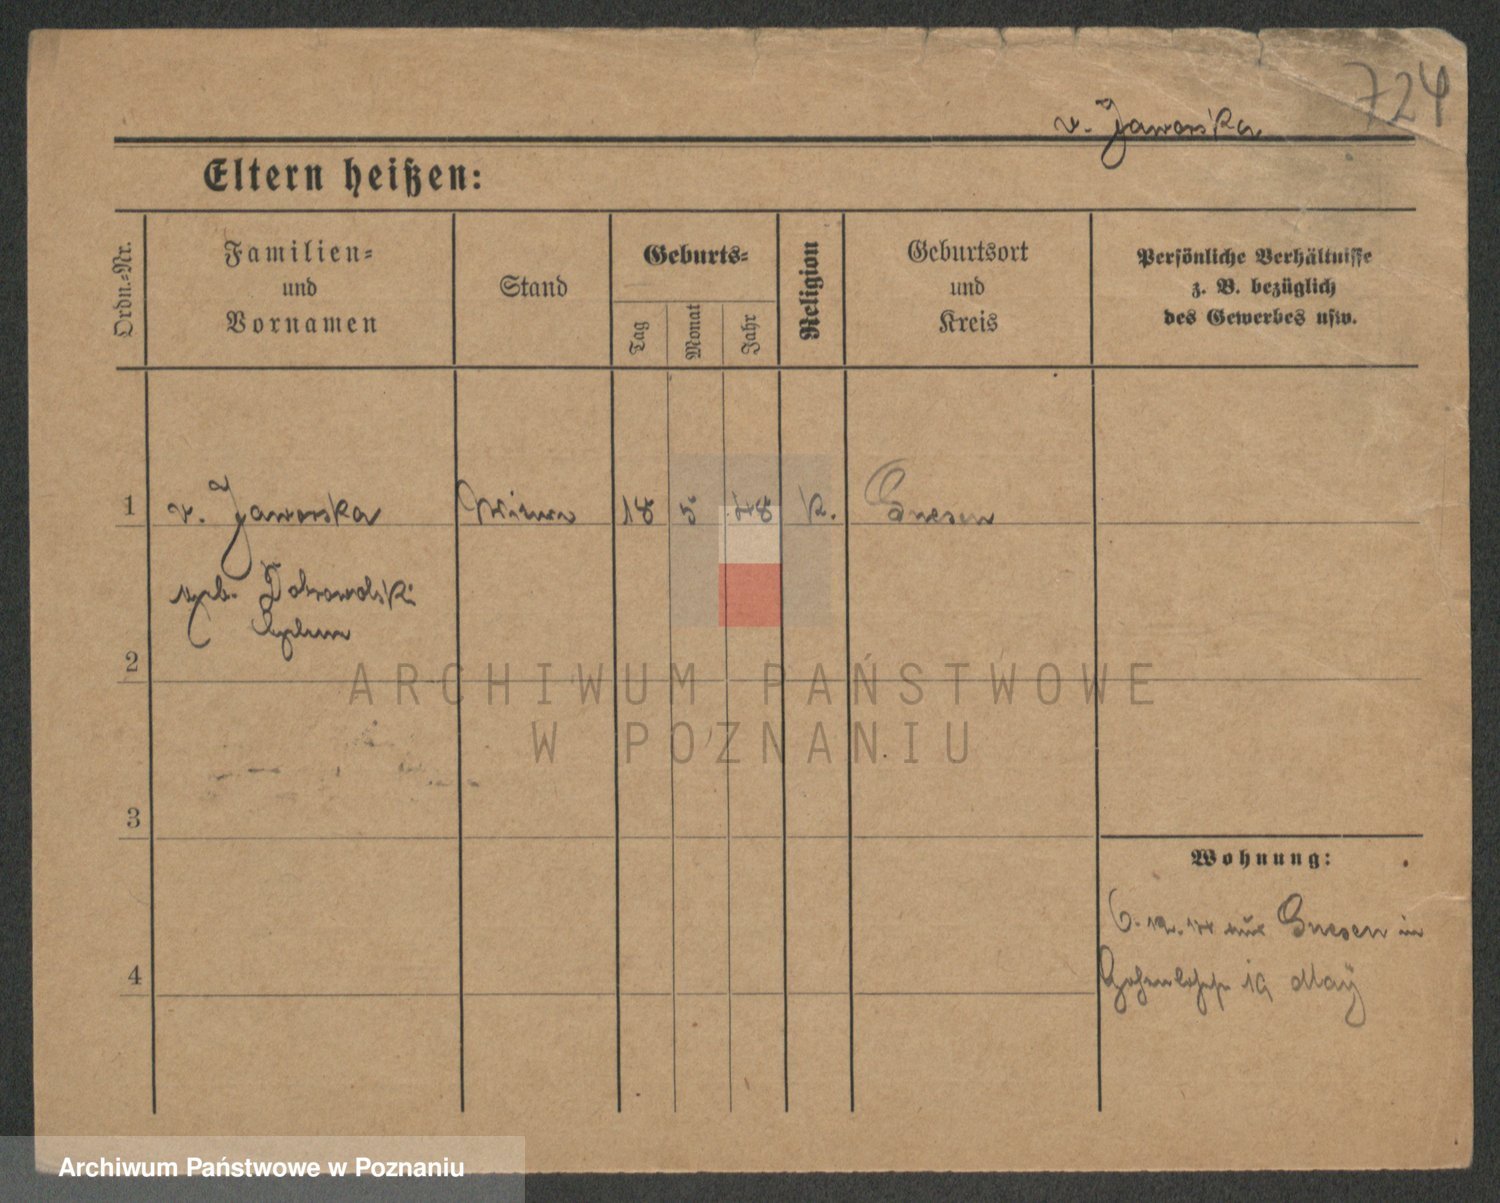 724
v. Jaworska
Eltern heißen:
Ordn.-Nr.
Familien-
und
Vornamen
Stand
Geburts-
Tag
Monat
Jahr
Religion
Geburtsort
und
Kreis
Persönliche Verhältnisse
z. B. bezüglich
des Gewerbes usw.
1 v. Jaworska Witwe 18 5 48 K. Gnesen
geb. Dobrowolski
2
ARCHIWUM PAŃSTWOWE
W POZNANIU
3
Wohnung:
6. 12. 14 aus Gnesen in
4
19 May
Archiwum Państwowe w Poznaniu